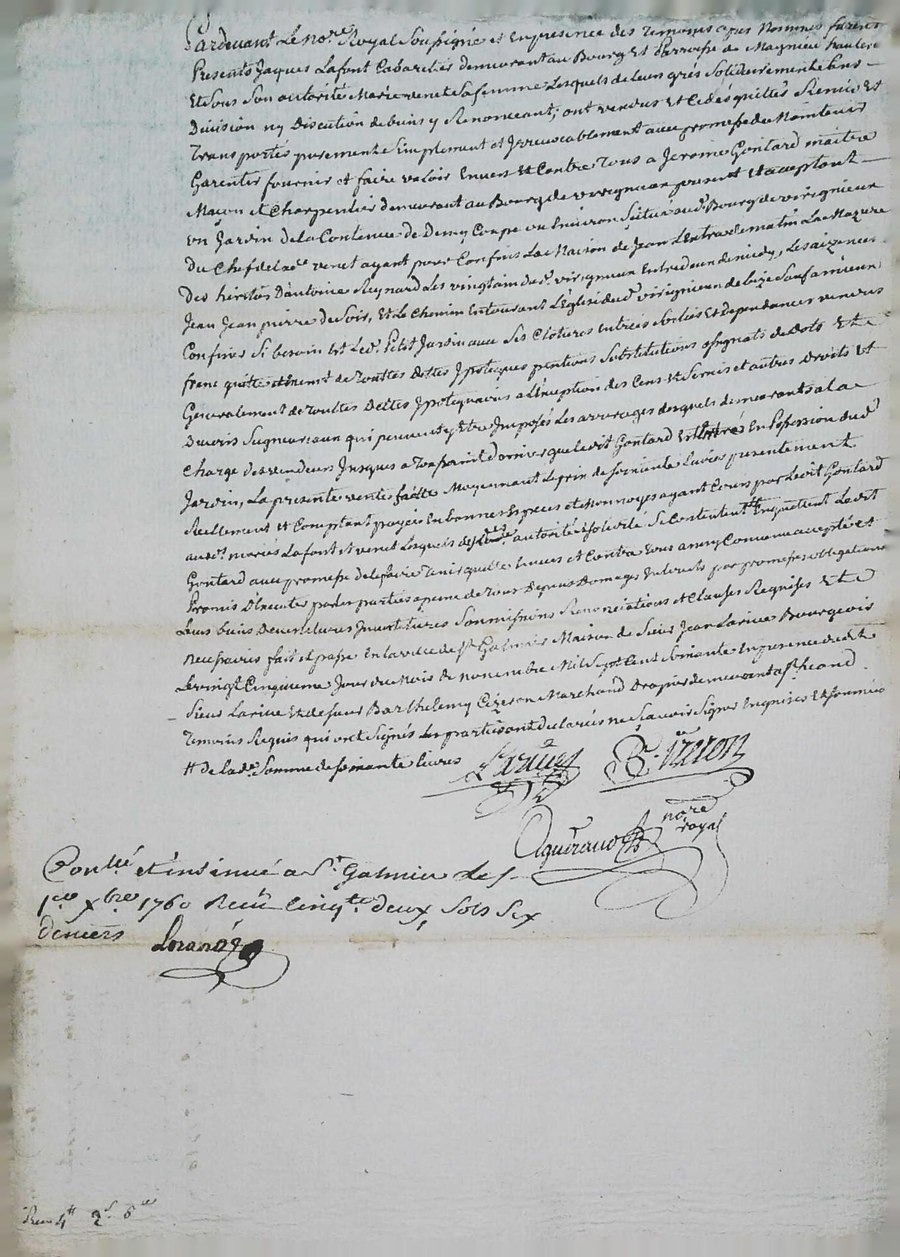 Pardevant Le no.re Royal Soussigné et En presence des Temoins apres Nommés furent
Presents Jaques Lafont Cabaretier demeurant au Bourg Et Parroisse de Magnieu hauterive
Et Sous Son autorité Marie venet Sa femme Lesquels de Leurs grés Solidairement Sans
Division ny Discution de biens y Renonceant, ont vendus Et Cedés quittés Remis Et
Transportés purement et Simplement et Jrrevocablement avec promesse de Maintenir
Garentir fournir et faire valoir Envers Et Contre Tous a Jerome Gontard maitre
Maçon et Charpentier demeurant au Bourg de virignieux present Et acceptant
un Jardin de la Contenue de Demy Coupe ou Environ Scitué aud.t Bourg de virignieux
du Chef de lad.e venet ayant pour Confins La Maison de Jean de matin La Mazure
des héritiers D'antoine Reynard Les vingtain dud.t virignieux Entre deux de midy, Les aizances
Jean Jean pierre de Soir, Et Le Chemin Entourant L'Eglise dud.t virignieux de bize Sauf a mieux
Confiner Si besoin Est Led.t Petit Jardin avec Ses Clotures Entrées Sorties Et dependances vendus
franc quitte de Touttes Dettes Jpoteques pentions Substitutions assignats de Dots Et
Generalement de Touttes Dettes Jpotequaires a L'Exception des Cens Et Servis et autres Droits Et
Devoirs Seigneuriaux qui peuvent y Etre Imposés Les arrerages desquels demeurants a La
Charge des vendeurs Jusques a ce jour que Ledit Gontard Entrera En Possession dud.t
Jardin, La presente vente faitte Moyennant Le prix de Soixante Livres presentement
Reellement et Comptant payée En bonnes Espèces et Monnoyes ayant Cours par Ledit Gontard
auxd.ts mariés Lafont et venet Lesquels de autorité Et Solidité Se Contentent tt En quittent Ledit
Gontard avec promesse de le faire Tenir quitte Envers et Contre Tous ainsy Convenu accepté et
Promis D'Executer par les parties a peine de Tous Depens Domages Interets par promesses obligations
Leurs biens Devestitures Jnvestitures Sommissions Renonciations et Clauses Requises Et
necessaires fait et passé En la ville de S.t Galmier Maison de Sieur Jean Larüe Bourgeois
Le vingt Cinquieme Jour du Mois de novembre Mil Sept Cent Soixante En presence dudit
Sieur Larüe Et de Sieur Barthelemy Cizeron Marchand Drapier demeurant a S.t heand
Temoins Requis qui ont Signés Les parties ont declarés ne Scavoir Signer Enquises Et Sommées
tt de lad.e Somme de Soixante Livres
Larües B.y Cizeron
no.re
royal
Con.llé et insinué a S.t Galmier Le
1.er xbre 1760 Reçu Cinq.te deux Sols Six
deniers
Reçu 4tt 2s 6